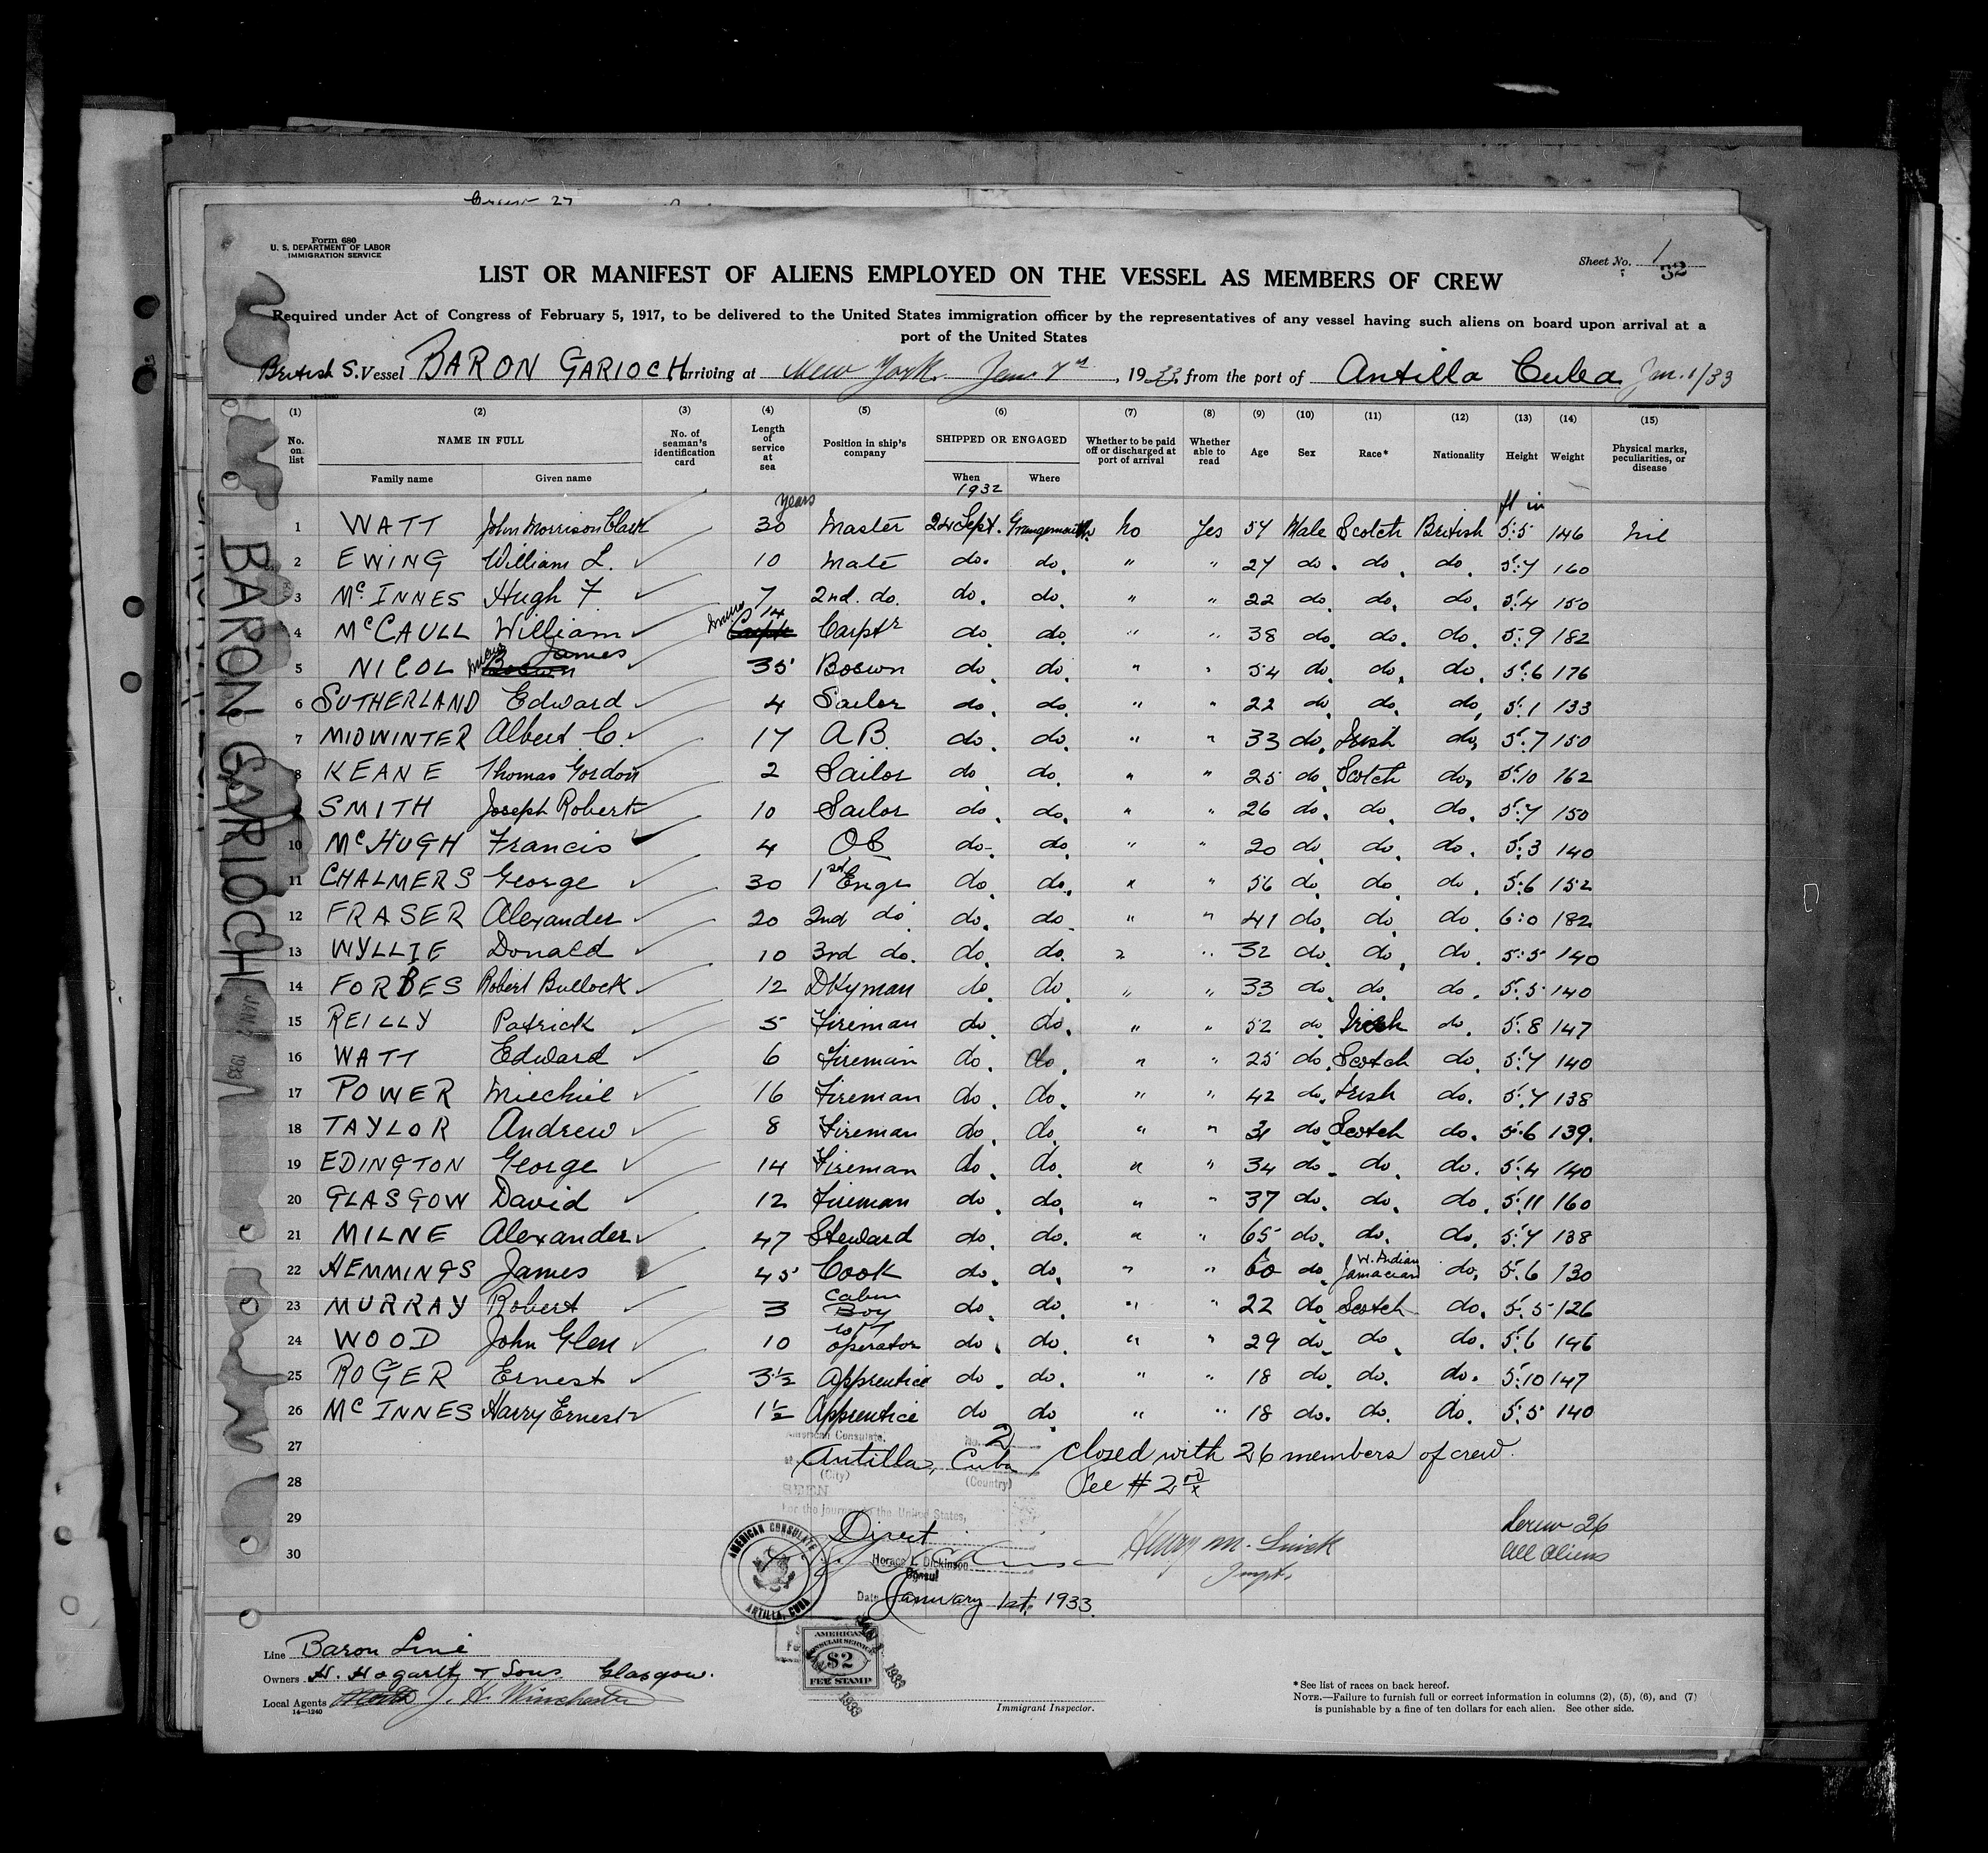 Crew 27
Form 680
U. S. DEPARTMENT OF LABOR
IMMIGRATION SERVICE
Sheet No. 1
32
LIST OR MANIFEST OF ALIENS EMPLOYED ON THE VESSEL AS MEMBERS OF CREW
Required under Act of Congress of February 5, 1917, to be delivered to the United States immigration officer by the representatives of any vessel having such aliens on board upon arrival at a
port of the United States
British S. Vessel BARON GARIOCH arriving at New York Jan. 7th, 1933, from the port of Antilla Cuba Jan. 1/33
(1) (2) (3) (4) (5) (6) (7) (8) (9) (10) (11) (12) (13) (14) (15)
No. on list NAME IN FULL Family name Given name No. of seaman's identification card Length of service at sea Position in ship's company SHIPPED OR ENGAGED When Where Whether to be paid off or discharged at port of arrival Whether able to read Age Sex Race* Nationality Height Weight Physical marks, peculiarities, or disease
years 1932 ft in
1 WATT John Morrison Clark 30 Master 24 Sept. Grangemouth No Yes 57 Male Scotch British 5:5 146 nil
2 EWING William L. 10 Mate do. do. " " 27 do. do. do. 5:7 160
3 McINNES Hugh F. 7 2nd. do. do. do. " " 22 do. do. do. 5:4 150
4 McCAULL William 14 Carptr do. do. " " 38 do. do. do. 5:9 182
5 NICOL James 35 Boswn do. do. " " 54 do. do. do. 5:6 176
6 SUTHERLAND Edward 4 Sailor do. do. " " 22 do. do. do. 5:1 133
7 MIDWINTER Albert C. 17 A.B. do. do. " " 33 do. Irish do. 5:7 150
8 KEANE Thomas Gordon 2 Sailor do. do. " " 25 do. Scotch do. 5:10 162
9 SMITH Joseph Robert 10 Sailor do. do. " " 26 do. do. do. 5:7 150
10 McHUGH Francis 4 OS do. do. " " 20 do. do. do. 5:3 140
11 CHALMERS George 30 1st Engr do. do. " " 56 do. do. do. 5:6 152
12 FRASER Alexander 20 2nd do do. do. " " 41 do. do. do. 6:0 182
13 WYLLIE Donald 10 3rd do. do. do. " " 32 do. do. do. 5:5 140
14 FORBES Robert Bullock 12 DKyman do. do. " " 33 do. do. do. 5:5 140
15 REILLY Patrick 5 Fireman do. do. " " 52 do. Irish do. 5:8 147
16 WATT Edward 6 Fireman do. do. " " 25 do. Scotch do. 5:7 140
17 POWER Miechiel 16 Fireman do. do. " " 42 do. Irish do. 5:7 138
18 TAYLOR Andrew 8 Fireman do. do. " " 31 do. Scotch do. 5:6 139.
19 EDINGTON George 14 Fireman do. do. " " 34 do. do. do. 5:4 140
20 GLASGOW David 12 Fireman do. do. " " 37 do. do. do. 5:11 160
21 MILNE Alexander 47 Steward do. do. " " 65 do. do. do. 5:7 138
22 HEMMINGS James 45 Cook do. do. " " 60 do. W. Indian Jamacian do. 5:6 130
23 MURRAY Robert 3 Cabin Boy do. do. " " 22 do. Scotch do. 5:5 126
24 WOOD John Glen 10 W/T operator do. do. " " 29 do. do. do. 5:6 146
25 ROGER Ernest 3½ Apprentice do. do. " " 18 do. do. do. 5:10 147
26 McINNES Harry Ernest 1½ Apprentice do do. " " 18 do. do. do. 5:5 140
American Consulate, No. 2
27 at Antilla, Cuba closed with 26 members of crew.
(City) (Country)
28 SEEN Fee # 2
For the journey to the United States,
29 Direct Crew 26
30 All aliens
Horace L. Dickinson
Consul
Date January 1st, 1933.
AMERICAN CONSULATE
ANTILLA, CUBA
Line Baron Line
Owners H. Hogarth & Sons Glasgow.
Local Agents J. H. Winchester
14—1240
AMERICAN
CONSULAR SERVICE
$2
FEE STAMP
JAN 1 1933
Immigrant Inspector.
*See list of races on back hereof.
NOTE.—Failure to furnish full or correct information in columns (2), (5), (6), and (7)
is punishable by a fine of ten dollars for each alien. See other side.
BARON GARIOCH
JAN 7 1933